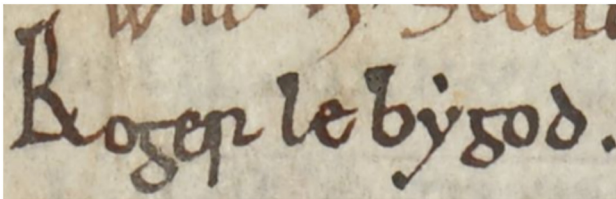 Roger le bygod.